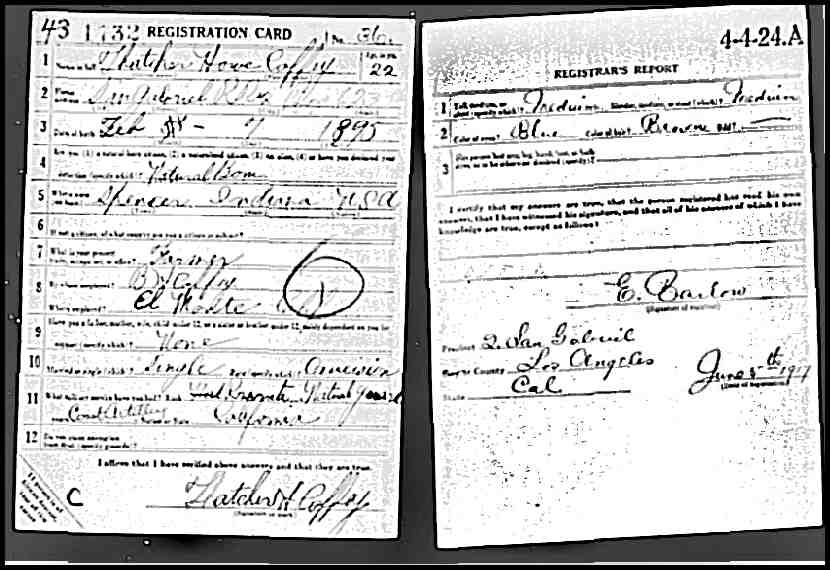 43 1732 REGISTRATION CARD No. 36
1 Name in full Thatcher Howe Coffey Age, in yrs. 22
2 Home address San Gabriel
3 Date of birth Feb 7 1895
4 Are you (1) a natural born citizen, (2) a naturalized citizen, (3) an alien, (4) or have you declared your intention (specify which)? Natural Born
5 Where were you born? Spencer Indiana USA
6 If not a citizen, of what country are you a citizen or subject?
7 What is your present trade, occupation, or office? Farmer
8 By whom employed? B Coffey
Where employed? El Monte
9 Have you a father, mother, wife, child under 12, or a sister or brother under 12, solely dependent on you for support (specify which)? None
10 Married or single (which)? Single Race (specify which)?
11 What military service have you had? Rank Private
Coast Artillery California
12 Do you claim exemption from draft (specify grounds)?
I affirm that I have verified above answers and that they are true.
C
Thatcher H Coffey
(Signature or mark)
4-4-24.A
REGISTRAR'S REPORT
1 Tall, medium, or short (specify which)? Medium Slender, medium, or stout (which)? Medium
2 Color of eyes? Blue Color of hair? Brown Bald?
3 Has person lost arm, leg, hand, foot, or both eyes, or is he otherwise disabled (specify)?
I certify that my answers are true, that the person registered has read his own answers, that I have witnessed his signature, and that all of his answers of which I have knowledge are true, except as follows:
E. Barlow
(Signature of registrar)
Precinct 2. San Gabriel
County Los Angeles
State Cal.
June 5th 1917
(Date of registration)